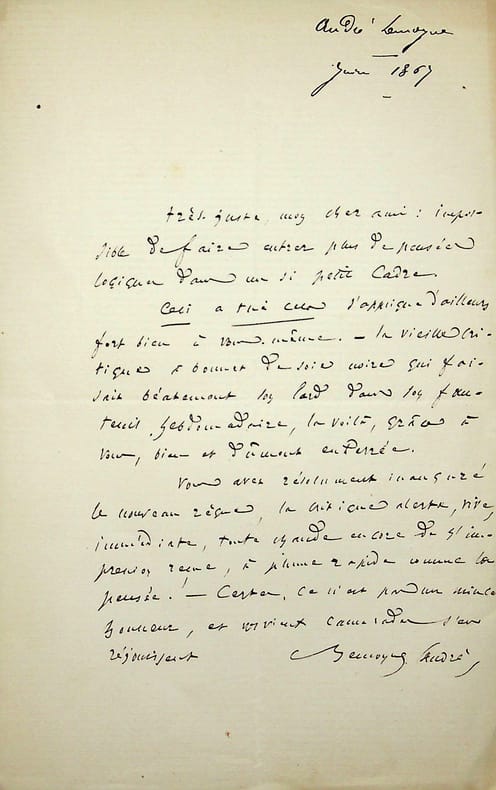 André Lemoyne
Juin 1867
très-juste, mon cher ami : impos-
sible de faire entrer plus de pensées
logiques dans un si petit cadre.
Ceci a tué cela s'applique d'ailleurs
fort bien à vous-même. – La vieille cri-
tique à bonnet de soie noire qui fai-
sait béatement son lard dans son fau-
teuil hebdomadaire, la voilà, grâce à
vous, bien et dûment enterrée.
Vous avez résolument inauguré
le nouveau règne, la critique alerte, vive,
immédiate, toute chaude encore de l'im-
pression reçue, à plume rapide comme la
pensée ! – Certes, ce n'est pas un mince
honneur, et vos vieux camarades s'en
réjouissent
Lemoyne André